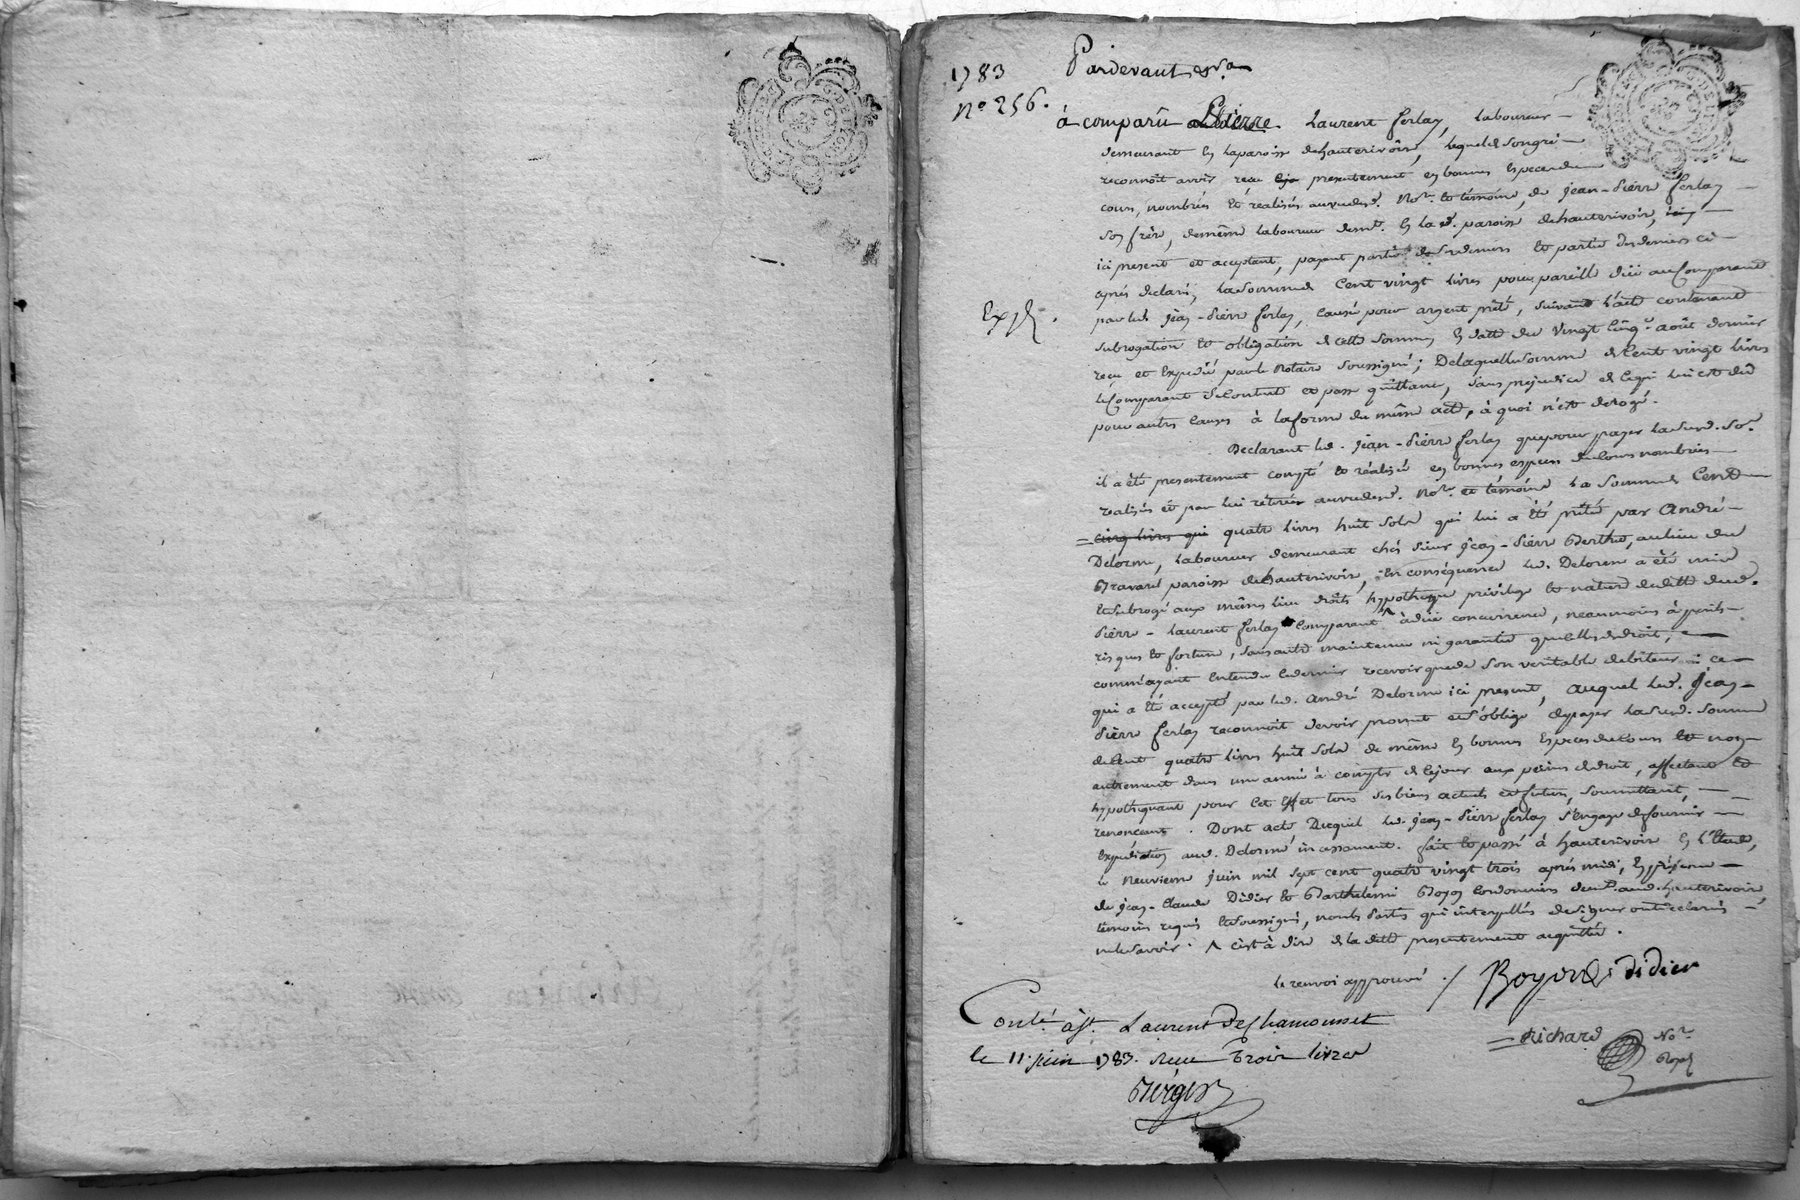 G. DE LYON
1783
N° 256.
Pardevant &ra
à comparû Pierre Laurent ferlay, laboureur
demeurant en la paroisse dhauterivoire, lequel de son gré
reconnoit avoir reçu presentement en bonnes Especes du
cours, nombrées et réalisées au vu dud. No.re et témoins, de jean-Pierre ferlay
son frère, de même laboureur demt. en lad. paroisse dehauterivoir,
ici present et acceptant, payant partie de ses deniers et partie des deniers ci
après declarés, la somme de Cent vingt livres pour pareille düe au Comparant
par led. jean-Pierre ferlay, causée pour argent prêté, suivant l'acte contenant
subrogation et obligation de cette somme, en datte du vingt cinq.e août dernier
reçu et Expedié par le Notaire soussigné; De laquelle somme de Cent vingt livres
le Comparant se contente et passe quittance, sans prejudice de ce qui lui est dû
pour autres causes à la forme du même acte, à quoi n'est derogé.
Expé.
Declarant led. jean-Pierre ferlay que pour payer la susd. so.e
il a été presentement compté et réalisé en bonnes especes du Cours nombrées
réalisées et par lui retirées au vu dud. No.re et témoins la somme de Cent
cinq livres qui quatre livres huit sols qui lui a été prêtée par André
Delorme, laboureur demeurant chés sieur jean-Pierre Berthe, au lieu du
Bravard paroisse dehauterivoir, En conséquence led. Delorme a été mis
et subrogé aux mêmes lieu droits hypotheque privilege et nature de dette dud.
Pierre-Laurent ferlay Comparant ^ à düe concurrence, neanmoins à perils
risques et fortune, sans autre maintenue ni garantie que celle de droit,
comme ayant Entendu ce dernier recevoir que de son veritable debiteur; ce
qui a été accepté par led. André Delorme ici present, auquel led. jean-
Pierre ferlay reconnoit devoir promet et s'oblige de payer la susd. somme
de Cent quatre livres huit sols de même en bonnes Especes du Cours et non
autrement dans une année à compter de ce jour aux peines de droit, affectant et
hypothequant pour cet Effet tous ses biens actuels et futurs, soumettant,
renonçant. Dont acte Duquel led. jean-Pierre ferlay s'engage de fournir
Expedition aud. Delorme incessament. fait et passé à hauterivoir En l'Etude,
le neuvieme juin mil sept cent quatre vingt trois après midi, En présence
de jean-Claude Didier et Barthelemi Boyon Cordonniers demt. aud. hauterivoir
témoins requis Et soussignés, non les parties qui interpellées de signer ont declaré
ne le savoir. ^ c'est à dire de la dette presentement acquittée.
le renvoi approuvé ./.
Boyon
didier
Richard No.re
Royal
Contlé. à St. Laurent de Chamousset
le 11. juin 1783. reçu Trois livres